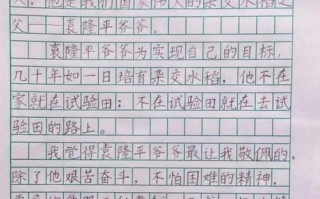 人，他是我们国家伟大的杂交水稻之
父——袁隆平爷爷。
袁隆平爷爷为实现自己的目标，
几十年如一日培育杂交水稻，他不在
家就在试验田；不在试验田就在去试
验田的路上。
我觉得袁隆平爷爷最让我敬佩的，
除了他艰苦奋斗，不怕困难的精神，